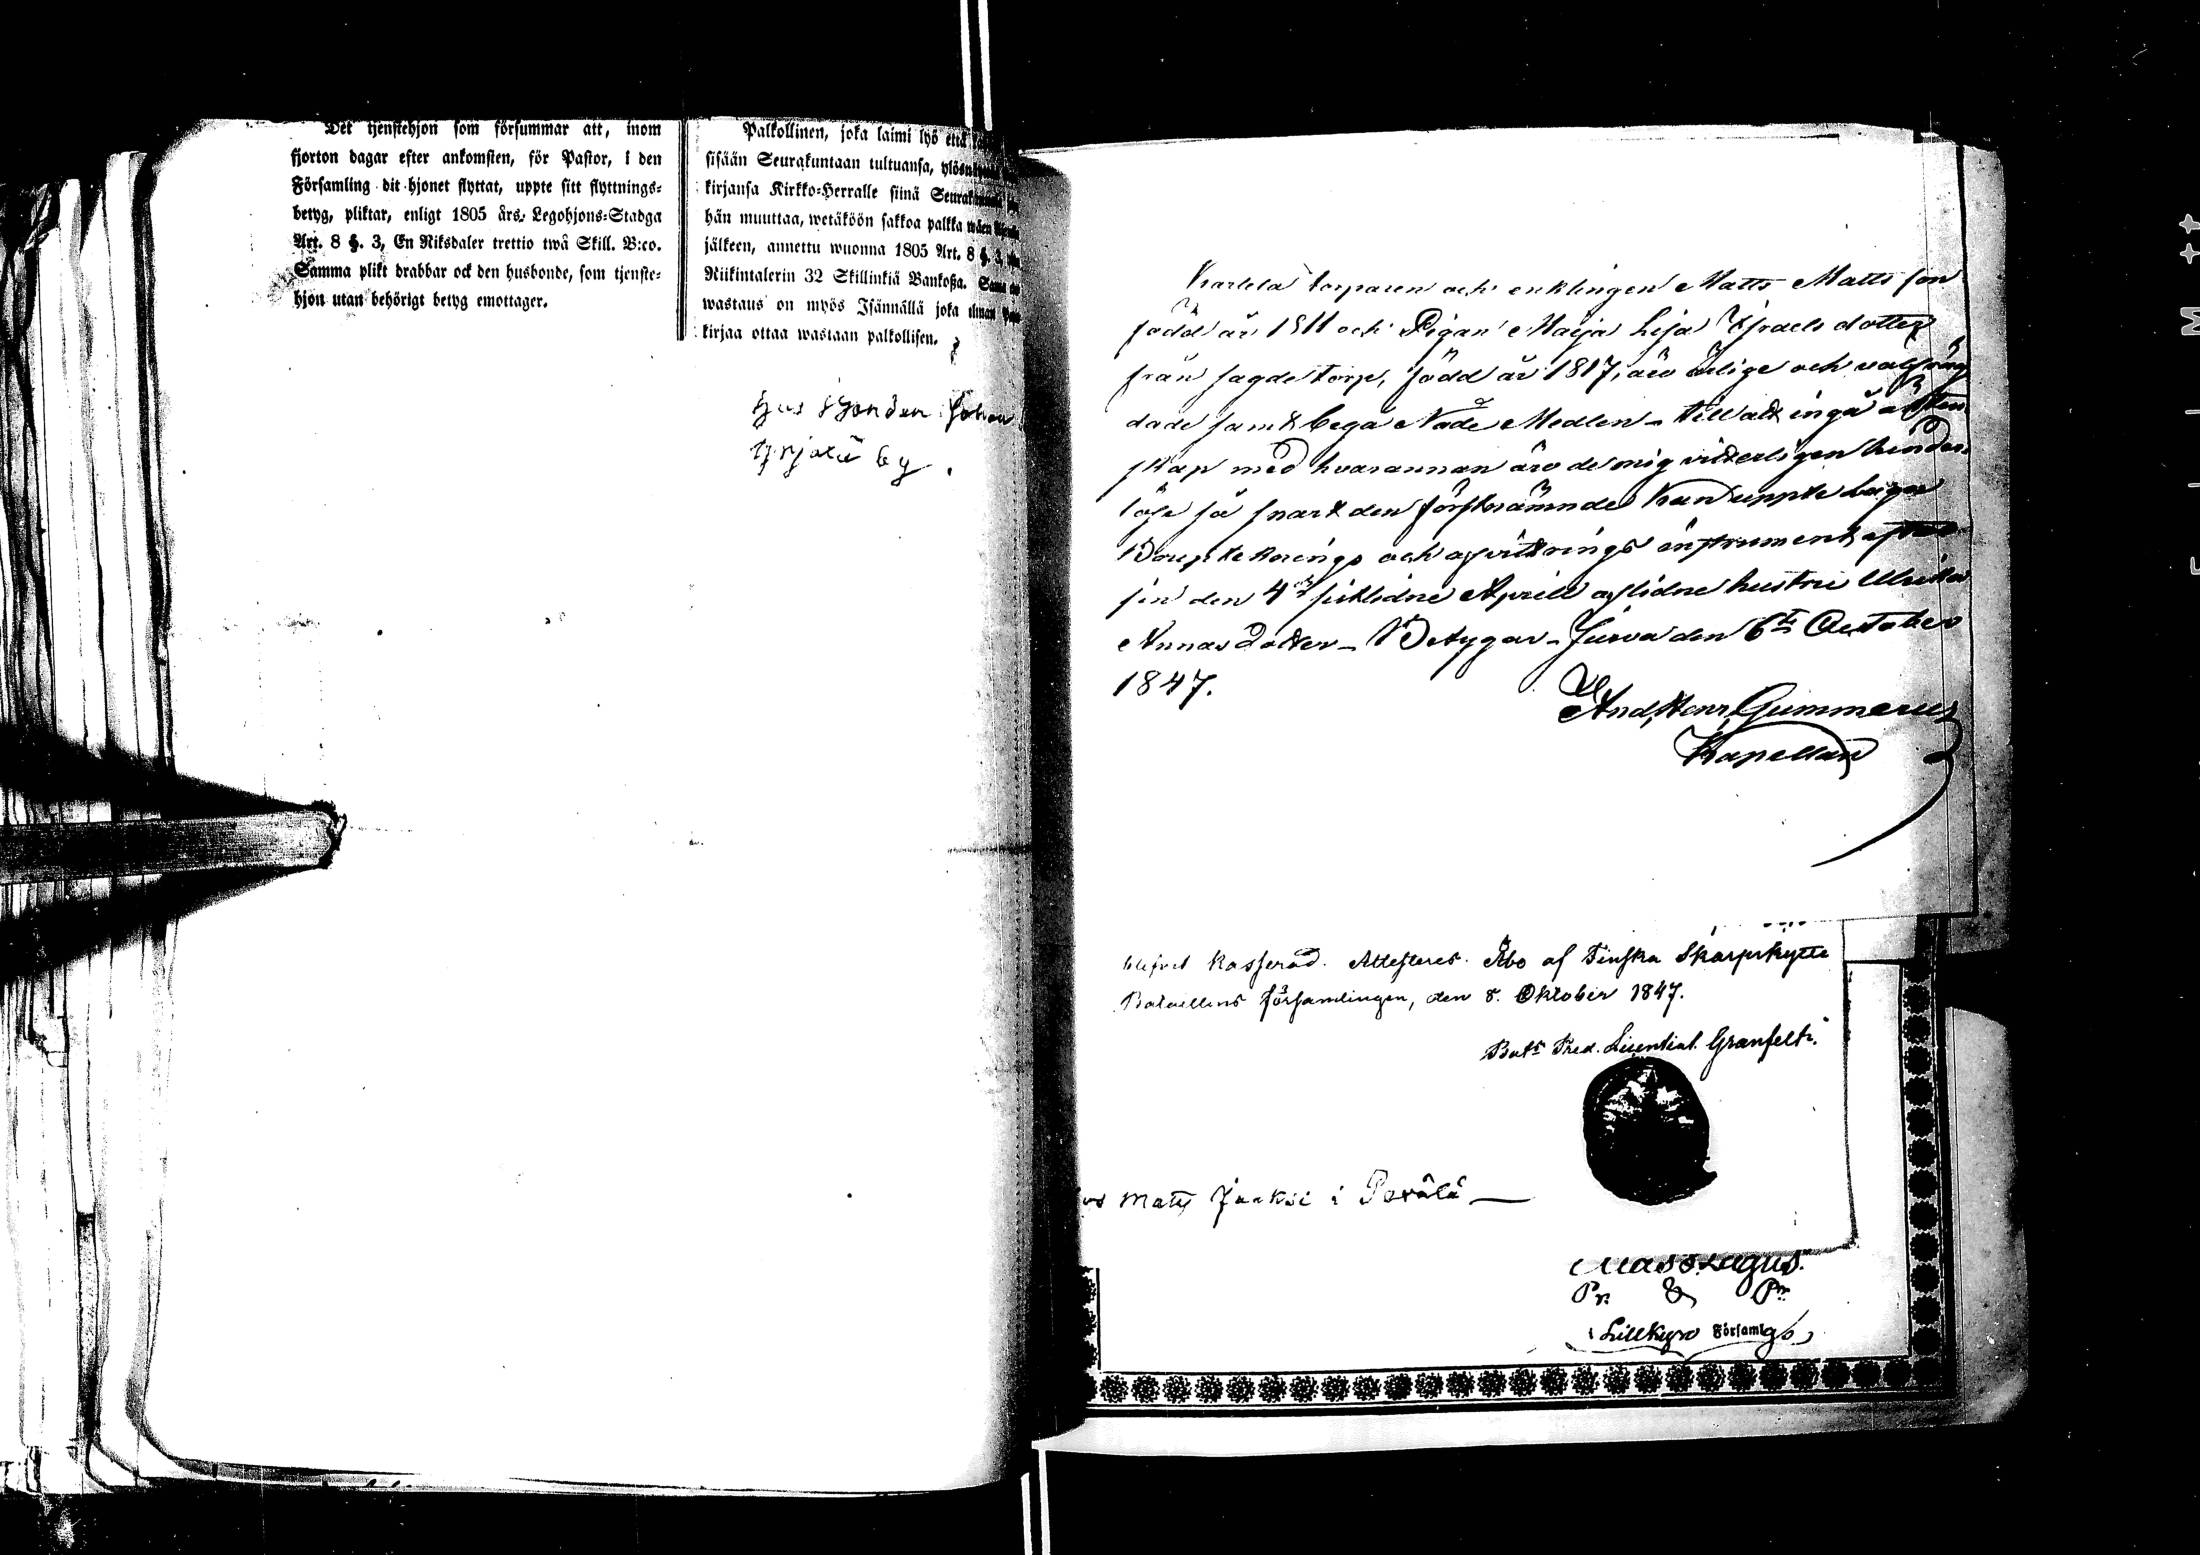 Det tjenstehjon som försummar att, inom
fjorton dagar efter ankomsten, för Pastor, i den
Församling dit hjonet flyttat, uppte sitt flyttnings-
betyg, pliktar, enligt 1805 års Legohjons-Stadga
Art. 8 §. 3, En Riksdaler trettio twå Skill. B:co.
Samma plikt drabbar ock den husbonde, som tjenste-
hjon utan behörigt betyg emottager.
Palkollinen, joka laimi lyö että
sisään Seurakuntaan tultuansa,
kirjansa Kirkko-Herralle siinä
hän muuttaa, wetäköön sakkoa palkka
jälkeen, annettu wuonna 1805 Art. 8 §. 3,
Riikintalerin 32 Skillinkiä Bankoßa.
wastaus on myös Isännällä joka ilman
kirjaa ottaa wastaan palkollisen.
hus bonden Johan
by.
torparen och enklingen Matts Matts son
född år 1811 och Pigan Maija Lisa Israels dotter
från sagde torp, född år 1817, äro ärlige och välfräg
dade samt bega Nåde Medlen - till at ingå ägten
skap med hvarannan äro de mig vitterligen hinder
löse så snart den förstnämnde kan uppte laga
Boupteknings och afvittrings instrument efter
sin den 4de sistledne April aflidne hustru Ulrika
Annas dotter - Betygar - Jurva den 6te October
1847.
And. Henr. Gummerus
Kapellan
blifvit kasserad. Attesteras. Åbo af Finska Skarpskytte
Bataillons församlingen, den 8. Oktober 1847.
Bats Pred. Licentiat. Granfelt.
Matts Jaakso i Perälä
Pr. & Pr.
i Lillkyro Församlg